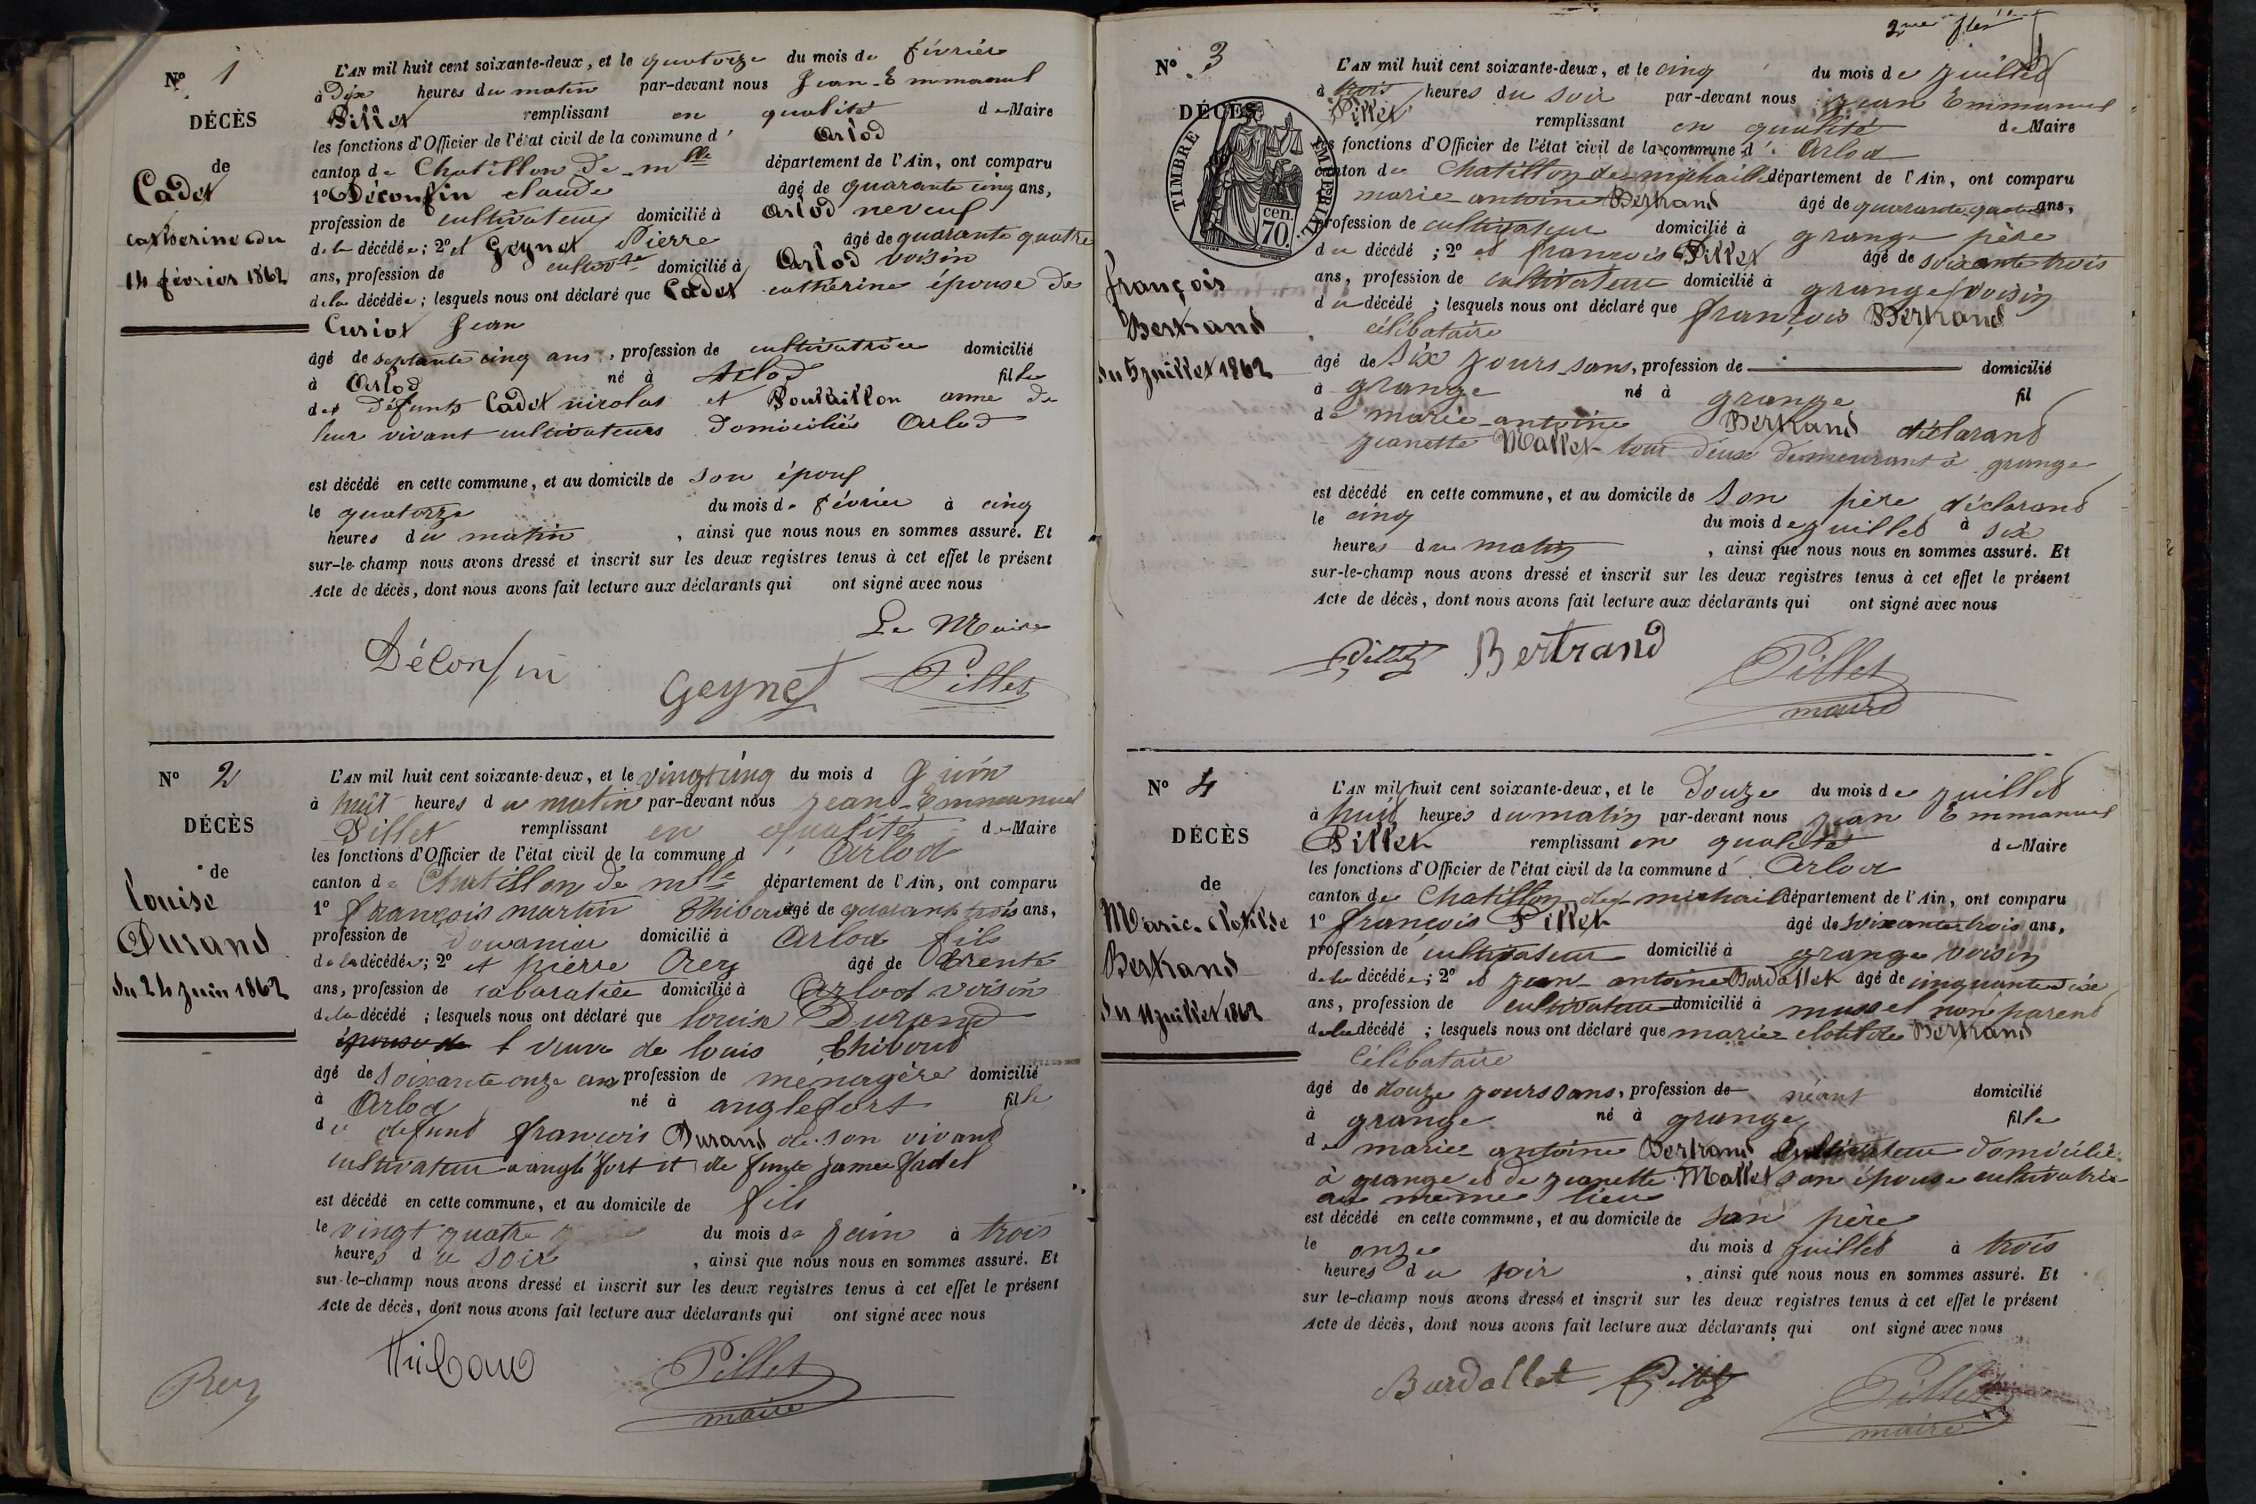 N° 1
DÉCÈS
de
Cadet
catherine du
14 février 1862
L'AN mil huit cent soixante-deux, et le quatorze du mois de février
à Dix heures du matin par-devant nous Jean-Emmanuel
Pillet remplissant en qualité de Maire
les fonctions d'Officier de l'état civil de la commune d' Arlod
canton de Chatillon de mlle département de l'Ain, ont comparu
1° Déconfin claude âgé de quarante cinq ans,
profession de cultivateur domicilié à Arlod neveuf
de la décédée; 2° et Geynet Pierre âgé de quarante quatre
ans, profession de domicilié à Arlod voisin
de la décédée; lesquels nous ont déclaré que Cadet cathérine épouse de
Curiot Jean
âgé de septante cinq ans, profession de cultivatrice domicilié
à Arlod né à Arlod fille
des défunts Cadet nicolas et anne de
leur vivant cultivateurs domiciliés Arlod
est décédé en cette commune, et au domicile de son épouf
le quatorze du mois de février à cinq
heures du matin, ainsi que nous nous en sommes assuré. Et
sur-le-champ nous avons dressé et inscrit sur les deux registres tenus à cet effet le présent
Acte de décès, dont nous avons fait lecture aux déclarants qui ont signé avec nous
Le Maire
Déconfin
Geynet
Pillet
N° 2
DÉCÈS
de
Louise
Durand
du 24 juin 1862
L'AN mil huit cent soixante-deux, et le vingt cinq du mois d Juin
à huit heures du matin par-devant nous jean-Emmanuel
Pillet remplissant en qualité de Maire
les fonctions d'Officier de l'état civil de la commune d Arlod
canton de Chatillon de mlle département de l'Ain, ont comparu
1° françois martin âgé de quarante trois ans,
profession de douanier domicilié à Arlod fils
de la décédée; 2° et pierre âgé de trente
ans, profession de domicilié à Arlod voisin
de la décédé; lesquels nous ont déclaré que louise Durand
épouse de veuve de louis thiboud
âgé de soixante onze ans profession de ménagère domicilié
à Arlod né à anglefort fille
de defunt françois Durand de son vivant
cultivateur a anglefort et de
est décédé en cette commune, et au domicile de fils
le vingt quatre du mois de juin à trois
heures du soir, ainsi que nous nous en sommes assuré. Et
sur-le-champ nous avons dressé et inscrit sur les deux registres tenus à cet effet le présent
Acte de décès, dont nous avons fait lecture aux déclarants qui ont signé avec nous
Rey
Pillet
maire
N° 3
DÉCÈS
TIMBRE IMPÉRIAL
70 cen.
françois
Bertrand
du 5 juillet 1862
L'AN mil huit cent soixante-deux, et le cinq du mois de juillet
à trois heures du soir par-devant nous jean Emmanuel
Pillet remplissant en qualité de Maire
les fonctions d'Officier de l'état civil de la commune d' Arlod
canton de Chatillon de michaille département de l'Ain, ont comparu
marie antoine Bertrand âgé de quarante quatre ans,
profession de cultivateur domicilié à grange père
du décédé; 2° et françois Pillet âgé de soixante trois
ans, profession de cultivateur domicilié à grange voisin
du décédé; lesquels nous ont déclaré que françois Bertrand
célibataire
âgé de six jours ans, profession de domicilié
à grange né à grange fil
de marie antoine Bertrand déclarant
jeanette Mallet tout deux demeurant à grange
est décédé en cette commune, et au domicile de son père déclarant
le cinq du mois de juillet à six
heures du matin, ainsi que nous nous en sommes assuré. Et
sur-le-champ nous avons dressé et inscrit sur les deux registres tenus à cet effet le présent
Acte de décès, dont nous avons fait lecture aux déclarants qui ont signé avec nous
Pillet Bertrand
Pillet
maire
N° 4
DÉCÈS
de
Marie-clotilde
Bertrand
du 11 juillet 1862
L'AN mil huit cent soixante-deux, et le Douze du mois de juillet
à huit heures du matin par-devant nous jean Emmanuel
Pillet remplissant en qualité de Maire
les fonctions d'Officier de l'état civil de la commune d' Arlod
canton de Chatillon de michaille département de l'Ain, ont comparu
1° françois Pillet âgé de soixante trois ans,
profession de cultivateur domicilié à grange voisin
de la décédée; 2° et jean antoine Burdallet âgé de cinquante six
ans, profession de cultivateur domicilié à mussel non parent
de la décédé; lesquels nous ont déclaré que marie clotilde Bertrand
Célibataire
âgé de douze jours ans, profession de néant domicilié
à grange né à grange fille
de marie antoine Bertrand cultivateur domicilié
à grange et de jeanette Mallet son épouse cultivatrice
au meme lieu
est décédé en cette commune, et au domicile de son père
le onze du mois d juillet à trois
heures du soir, ainsi que nous nous en sommes assuré. Et
sur le-champ nous avons dressé et inscrit sur les deux registres tenus à cet effet le présent
Acte de décès, dont nous avons fait lecture aux déclarants qui ont signé avec nous
Burdallet Pillet
Pillet
maire